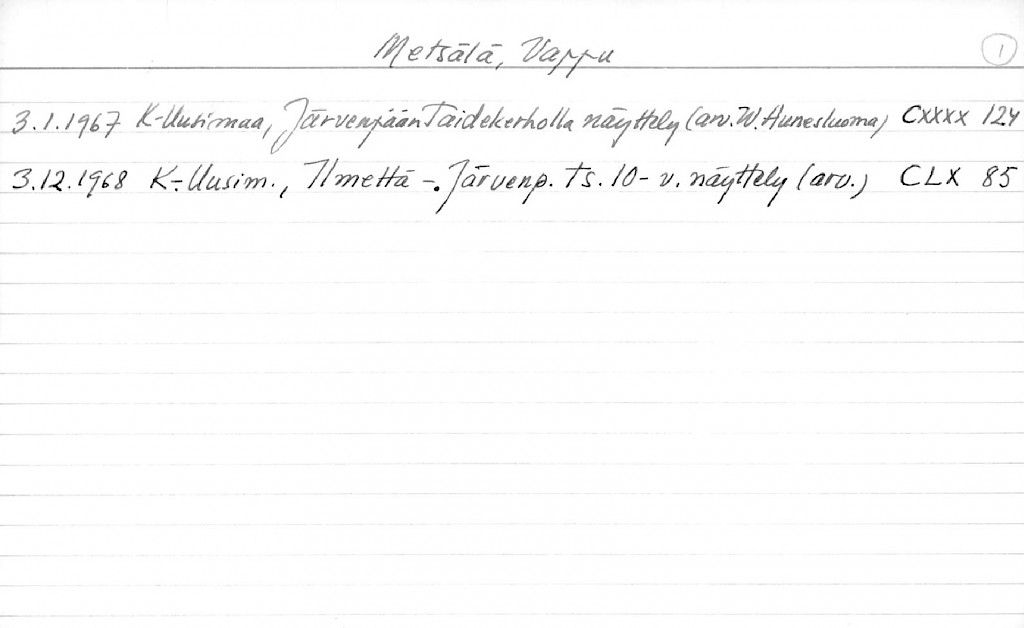 Metsälä, Vappu 1
3.1.1967 K-Uusimaa, Järvenpään Taidekerholla näyttely (arv. W. Hunesluoma) CXXXX 124
3.12.1968 K.-Uusim., Ilmettä -. Järvenp. ts. 10-v. näyttely (arv.) CLX 85